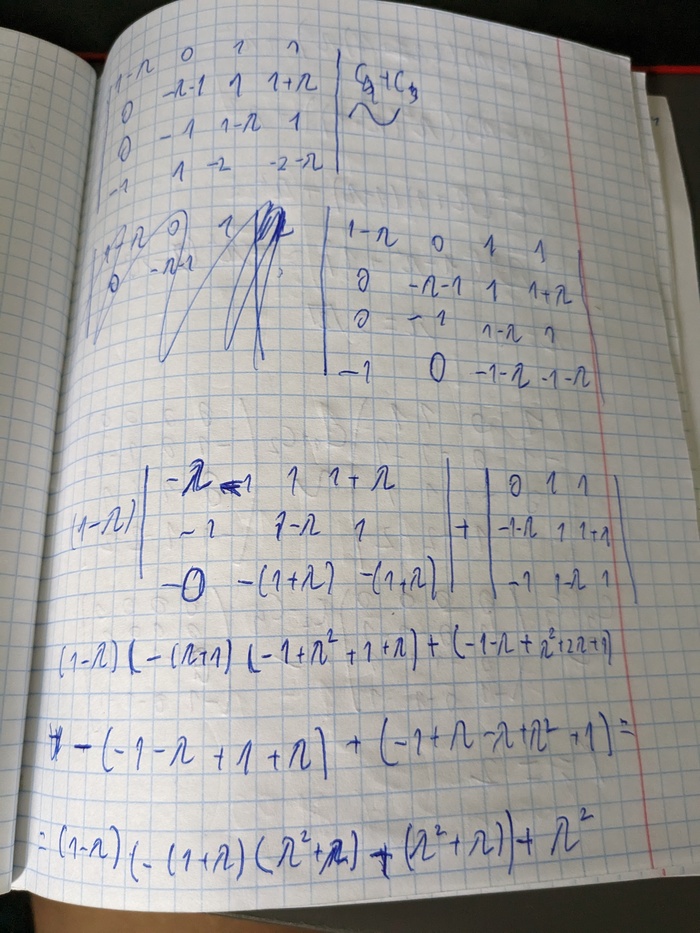 1-λ 0 1 1
0 -λ-1 1 1+λ
0 -1 1-λ 1
-1 1 -2 -2-λ
1-λ 0 1
0 -λ-1
1-λ 0 1 1
0 -λ-1 1 1+λ
0 -1 1-λ 1
-1 0 -1-λ -1-λ
(1-λ) | -λ-1 1 1+λ | + | 0 1 1 |
| -1 1-λ 1 | | -1-λ 1 1+λ |
| -0 -(1+λ) -(1+λ) | | -1 1-λ 1 |
(1-λ)(-(λ+1)(-1+λ²+1+λ)+(-1-λ+λ²+2λ+1)
-(-1-λ+1+λ)+(-1+λ-λ+λ²+1)=
=(1-λ)(-(1+λ)(λ²+λ)+(λ²+λ))+λ²